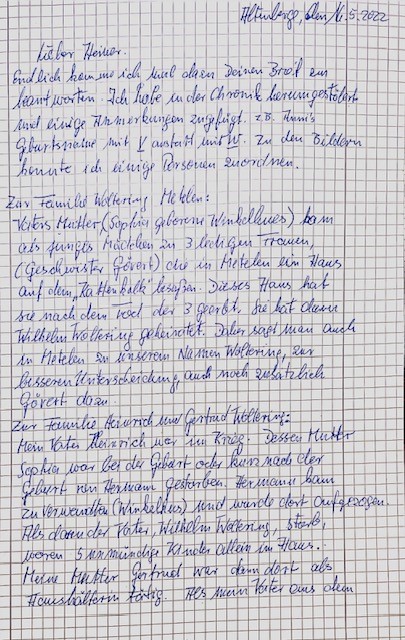 Altenberge, den 16.5.2022
Lieber Heiner.
Endlich komme ich mal dazu Deinen Brief zu
beantworten. Ich habe in der Chronik herumgestöbert
und einige Anmerkungen zugefügt. z.B.
Geburtsname mit V anstatt mit W. Zu den Bildern
konnte ich einige Personen zuordnen.
Zur Familie Woltering Metelen:
Vaters Mutter, (Sophia geborene Winkelhues) kam
als junges Mädchen zu 3 ledigen Frauen,
(Geschwister Gövert) die in Metelen ein Haus
auf dem besaßen. Dieses Haus hat
sie nach dem Tod der 3 geerbt. Sie hat dann
Wilhelm Woltering geheiratet. Daher sagt man auch
in Metelen zu unserem Namen Woltering, zur
besseren Unterscheidung, auch noch zusätzlich
Gövert dazu.
Zur Familie Heinrich und Gertrud Woltering:
Mein Vater Heinrich war im Krieg. Dessen Mutter
Sophia war bei der Geburt oder kurz nach der
Geburt von Hermann gestorben. Hermann kam
zu Verwandten (Winkelhues) und wurde dort aufgezogen.
Als dann der Vater, Wilhelm Woltering, starb,
waren 5 unmündige Kinder allein im Haus.
Meine Mutter Gertrud war dann dort als
Haushälterin tätig. Als mein Vater aus dem